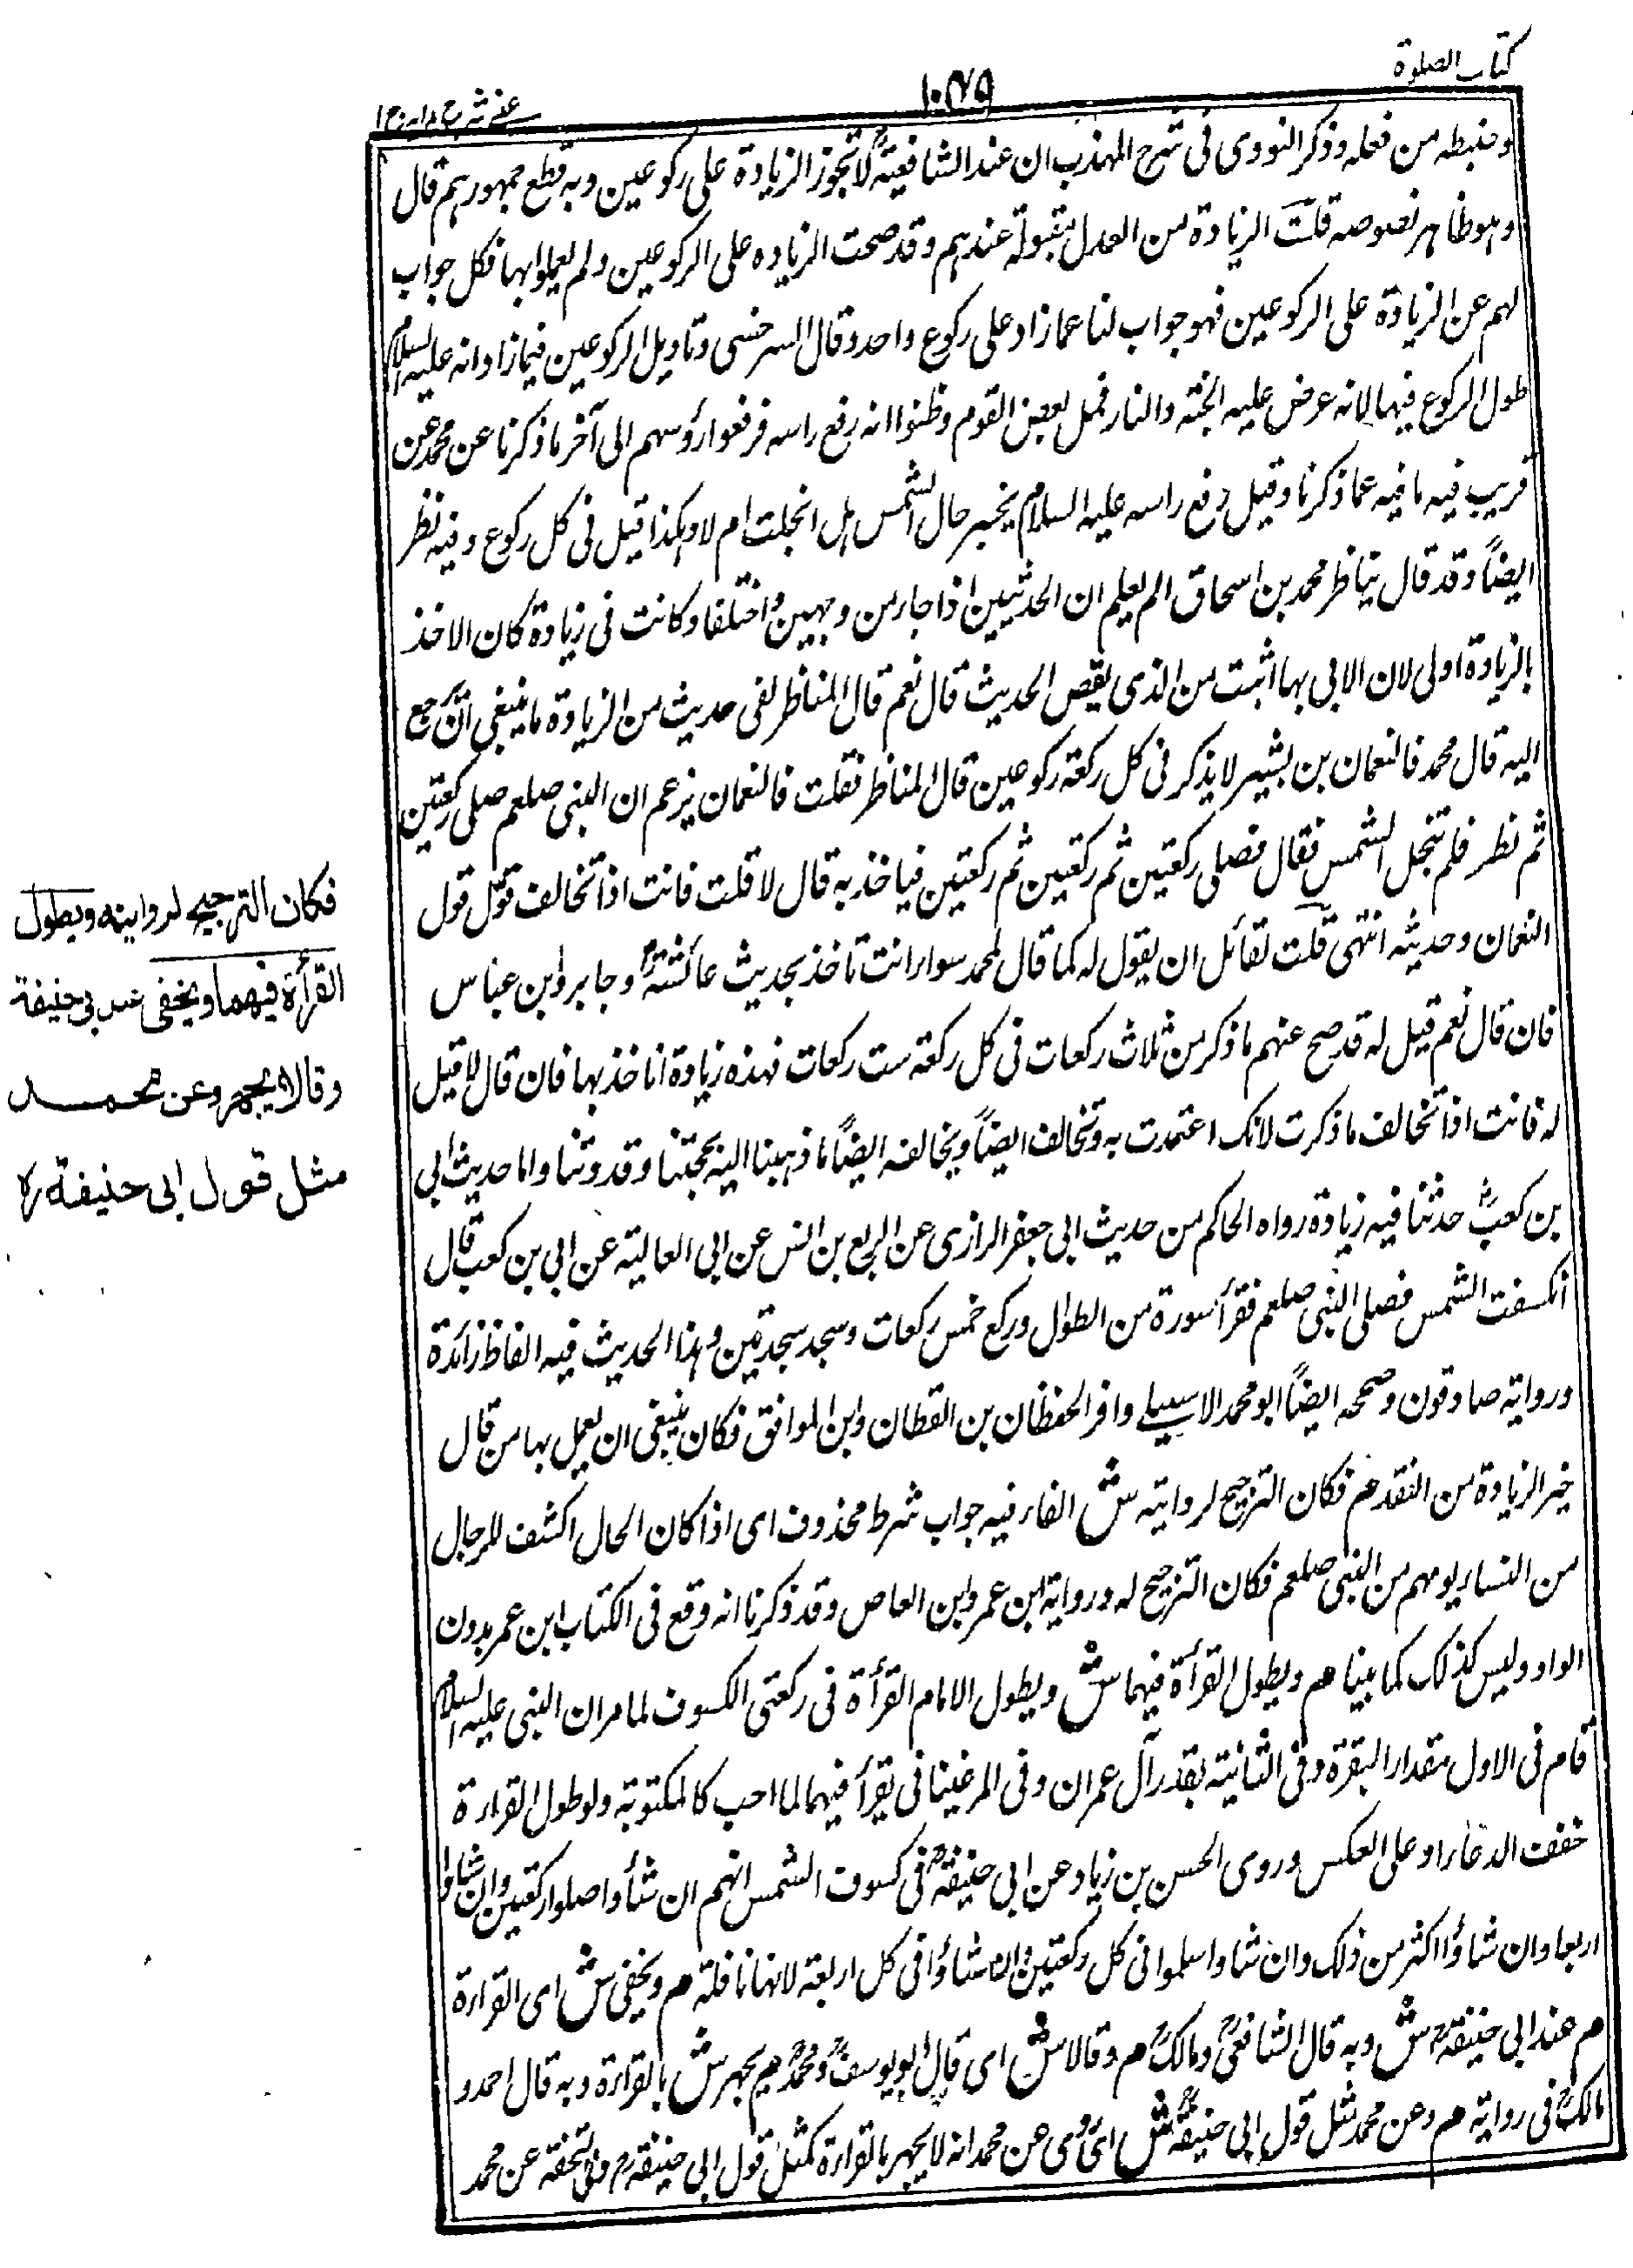 كتاب الصلوة
عينى شرح هدايه ج ١
وضبطه من فعله وذكر النووى فى شرح المهذب ان عند الشافعية لا تجوز الزيادة على ركوعين وبه قطع جمهورهم قال
وهو ظاهر نصوصه قلت الزيادة من العدل مقبولة عندهم وقد صحت الزياده على الركوعين ولم يعملوا بها فكل جواب
لهم عن الزيادة على الركوعين فهو جواب لنا عما زاد على ركوع واحد وقال السرخسى وتاويل الركوعين فيما زاد انه عليه السلام
طول الركوع فيها لانه عرض عليه الجنة والنار فمل بعض القوم وظنوا انه رفع راسه فرفعوا رؤسهم الى آخر ما ذكرنا عن محمد عن
قريب فيه ما فيه عما ذكرنا وقيل رفع راسه عليه السلام يخبر حال الشمس هل انجلت ام لا وهكذا قيل فى كل ركوع وفيه نظر
ايضاً وقد قال يناظر محمد بن اسحاق الم يعلم ان الحديثين اذا جاء من وجهين واختلفا وكانت فى زيادة كان الاخذ
بالزيادة اولى لان الاٰتى بها اثبت من الذى نقص الحديث قال نعم قال المناظر لفى حديث من الزيادة ما ينبغى ان ترجع
اليه قال محمد فالنعمان بن بشير لا يذكر فى كل ركعة ركوعين قال المناظر فقلت فالنعمان يزعم ان النبى صلعم صلى ركعتين
ثم نظر فلم تنجل الشمس فقال فصلى ركعتين ثم ركعتين ثم ركعتين فياخذ به قال لا قلت فانت اذاً تخالف قول قول
النعمان وحديثه انتهى قلت لقائل ان يقول له كما قال لمحمد سواء انت تاخذ بحديث عائشة وجابر وابن عباس
فان قال نعم قيل له قد صح عنهم ما ذكر من ثلاث ركعات فى كل ركعة ست ركعات فهذه زيادة اناخذ بها فان قال لا قيل
له فانت اذاً تخالف ما ذكرت لانك اعتمدت به وتخالف ايضاً ويخالفه ايضاً ما ذهبنا اليه بحجتنا وقدوتنا واما حديث ابى
بن كعب حدثنا فيه زيادة رواه الحاكم من حديث ابى جعفر الرازى عن الربيع بن انس عن ابى العالية عن ابى بن كعب قال
انكسفت الشمس فصلى النبى صلعم فقرأ سورة من الطوال وركع خمس ركعات وسجد سجدتين وهذا الحديث فيه الفاظ زائدة
ورواته صادقون وصححه ايضاً ابو محمد الاسبيلے واقر الحفظان بن القطان وابن الموافق فكان ينبغى ان يعمل بها من قال
خبر الزيادة من النقد م فكان الترجيح لروايته ش الفاء فيه جواب شرط محذوف اى اذا كان الحال اكشف للرجال
من النساء يومهم من النبى صلعم فكان الترجيح له ورواية ابن عمر وبن العاص وقد ذكرنا انه وقع فى الكتاب ابن عمر بدون
الواو وليس كذلك كما بينا م ويطول القرأة فيهما ش ويطول الامام القرأة فى ركعتى الكسوف لما مر ان النبى عليه السلام
قام فى الاول مقدار البقرة وفى الثانية بقدر آل عمران وفى المرغينانى يقرأ فيهما لما احب كالمكتوبة ولو طول القراءة
خففت الدعاء او على العكس وروى الحسن بن زياد عن ابى حنيفة فى كسوف الشمس انهم ان شأوا صلوا ركعتين وان شاؤا
اربعا وان شاؤا اكثر من ذلك وان شاوا سلموا فى كل ركعتين وان شاؤا فى كل اربعة لانها نافلة م ويخفى ش اى القراءة
م عند ابى حنيفة ش وبه قال الشافعى ومالك م وقالا ش اى قال ابو يوسف ومحمد م يجهر ش بالقراءة وبه قال احمد و
مالك فى رواية م وعن محمد مثل قول ابى حنيفة ش اى روى عن محمد انه لا يجهر بالقراءة كمثل قول ابى حنيفة م وفى التحفة عن محمد
فكان الترجيح لروايته ويطول
القرأة فيهما ويخفى عند ابى حنيفة
وقالا يجهر وعن محمد
مثل قول ابى حنيفة ره